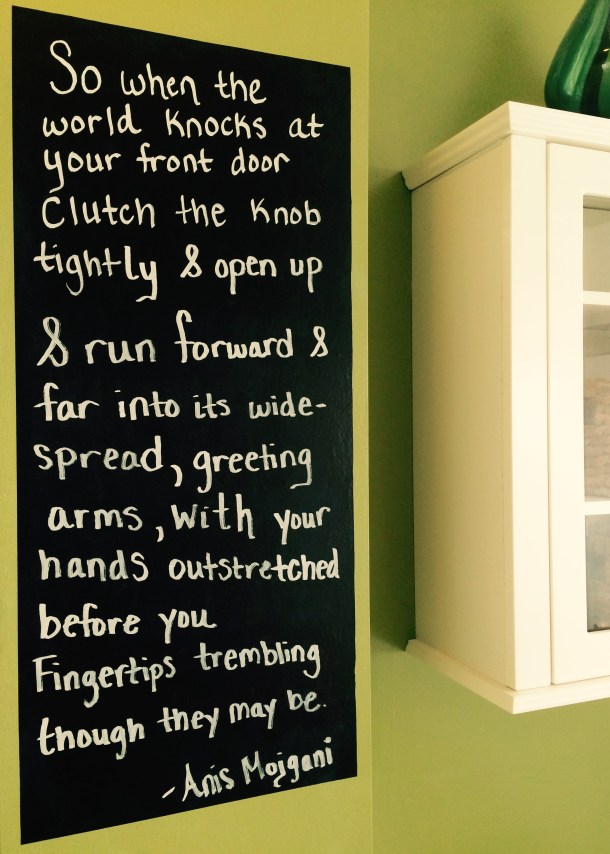 So when the
world knocks at
your front door
Clutch the knob
tightly & open up
& run forward &
far into its wide-
spread, greeting
arms, with your
hands outstretched
before you
Fingertips trembling
though they may be.
-Anis Mojgani